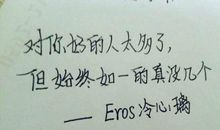 对你好的人太多了,
但始终如一的真没几个
—— Eros冷心璃